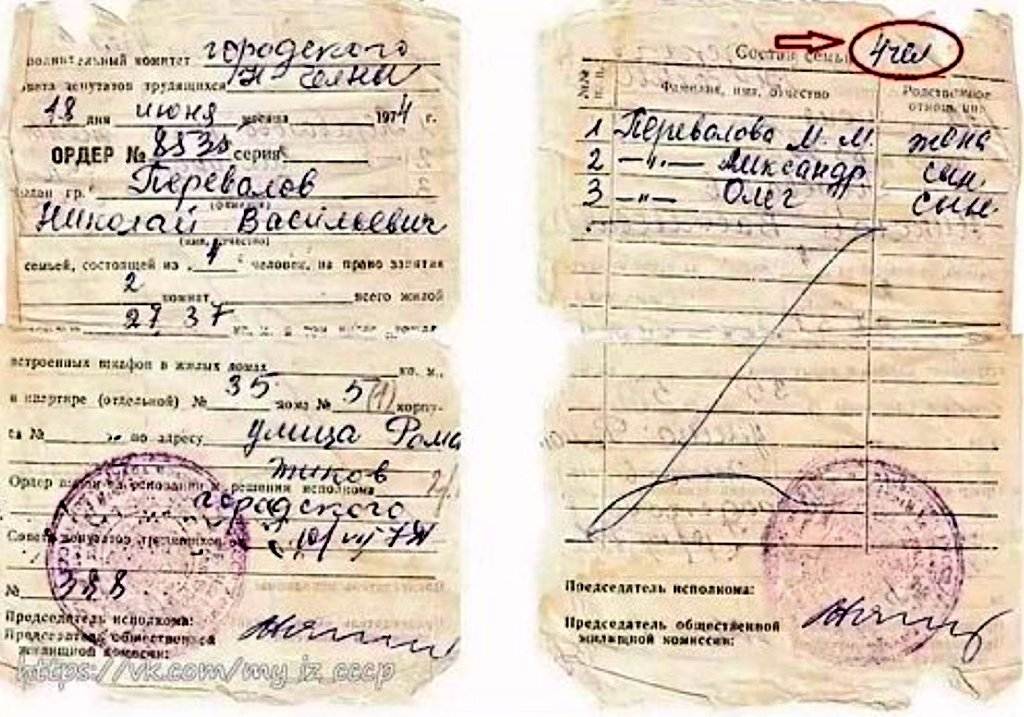 полнительный комитет городского
Н Челны
овета депутатов трудящихся
18 дня июня месяца 1974 г.
ОРДЕР № 853 серия
Выдан гр. Перевалов
(фамилия)
Николай Васильевич
(имя, отчество)
семьей, состоящей из человек, на право занятия
2
комнат всего жилой
27 37
встроенных шкафов в жилых домах кв. м.
в квартире (отдельной) № 35 дома № 5 (1) корпу-
са № по адресу улица Рома
тиков
Ордер выдан на основании решения исполкома
городского
Совета депутатов трудящихся от
№ 388
Председатель исполкома:
Председатель общественной
жилищной комиссии:
https://vk.com/my_iz_cccp
Состав семьи 4 чел
№№ п. п. Фамилия, имя, отчество Родственное
отношение
1 Перевалова М. М. жена
2 —"— Александр сын
3 —"— Олег сын
Председатель исполкома:
Председатель общественной
жилищной комиссии: